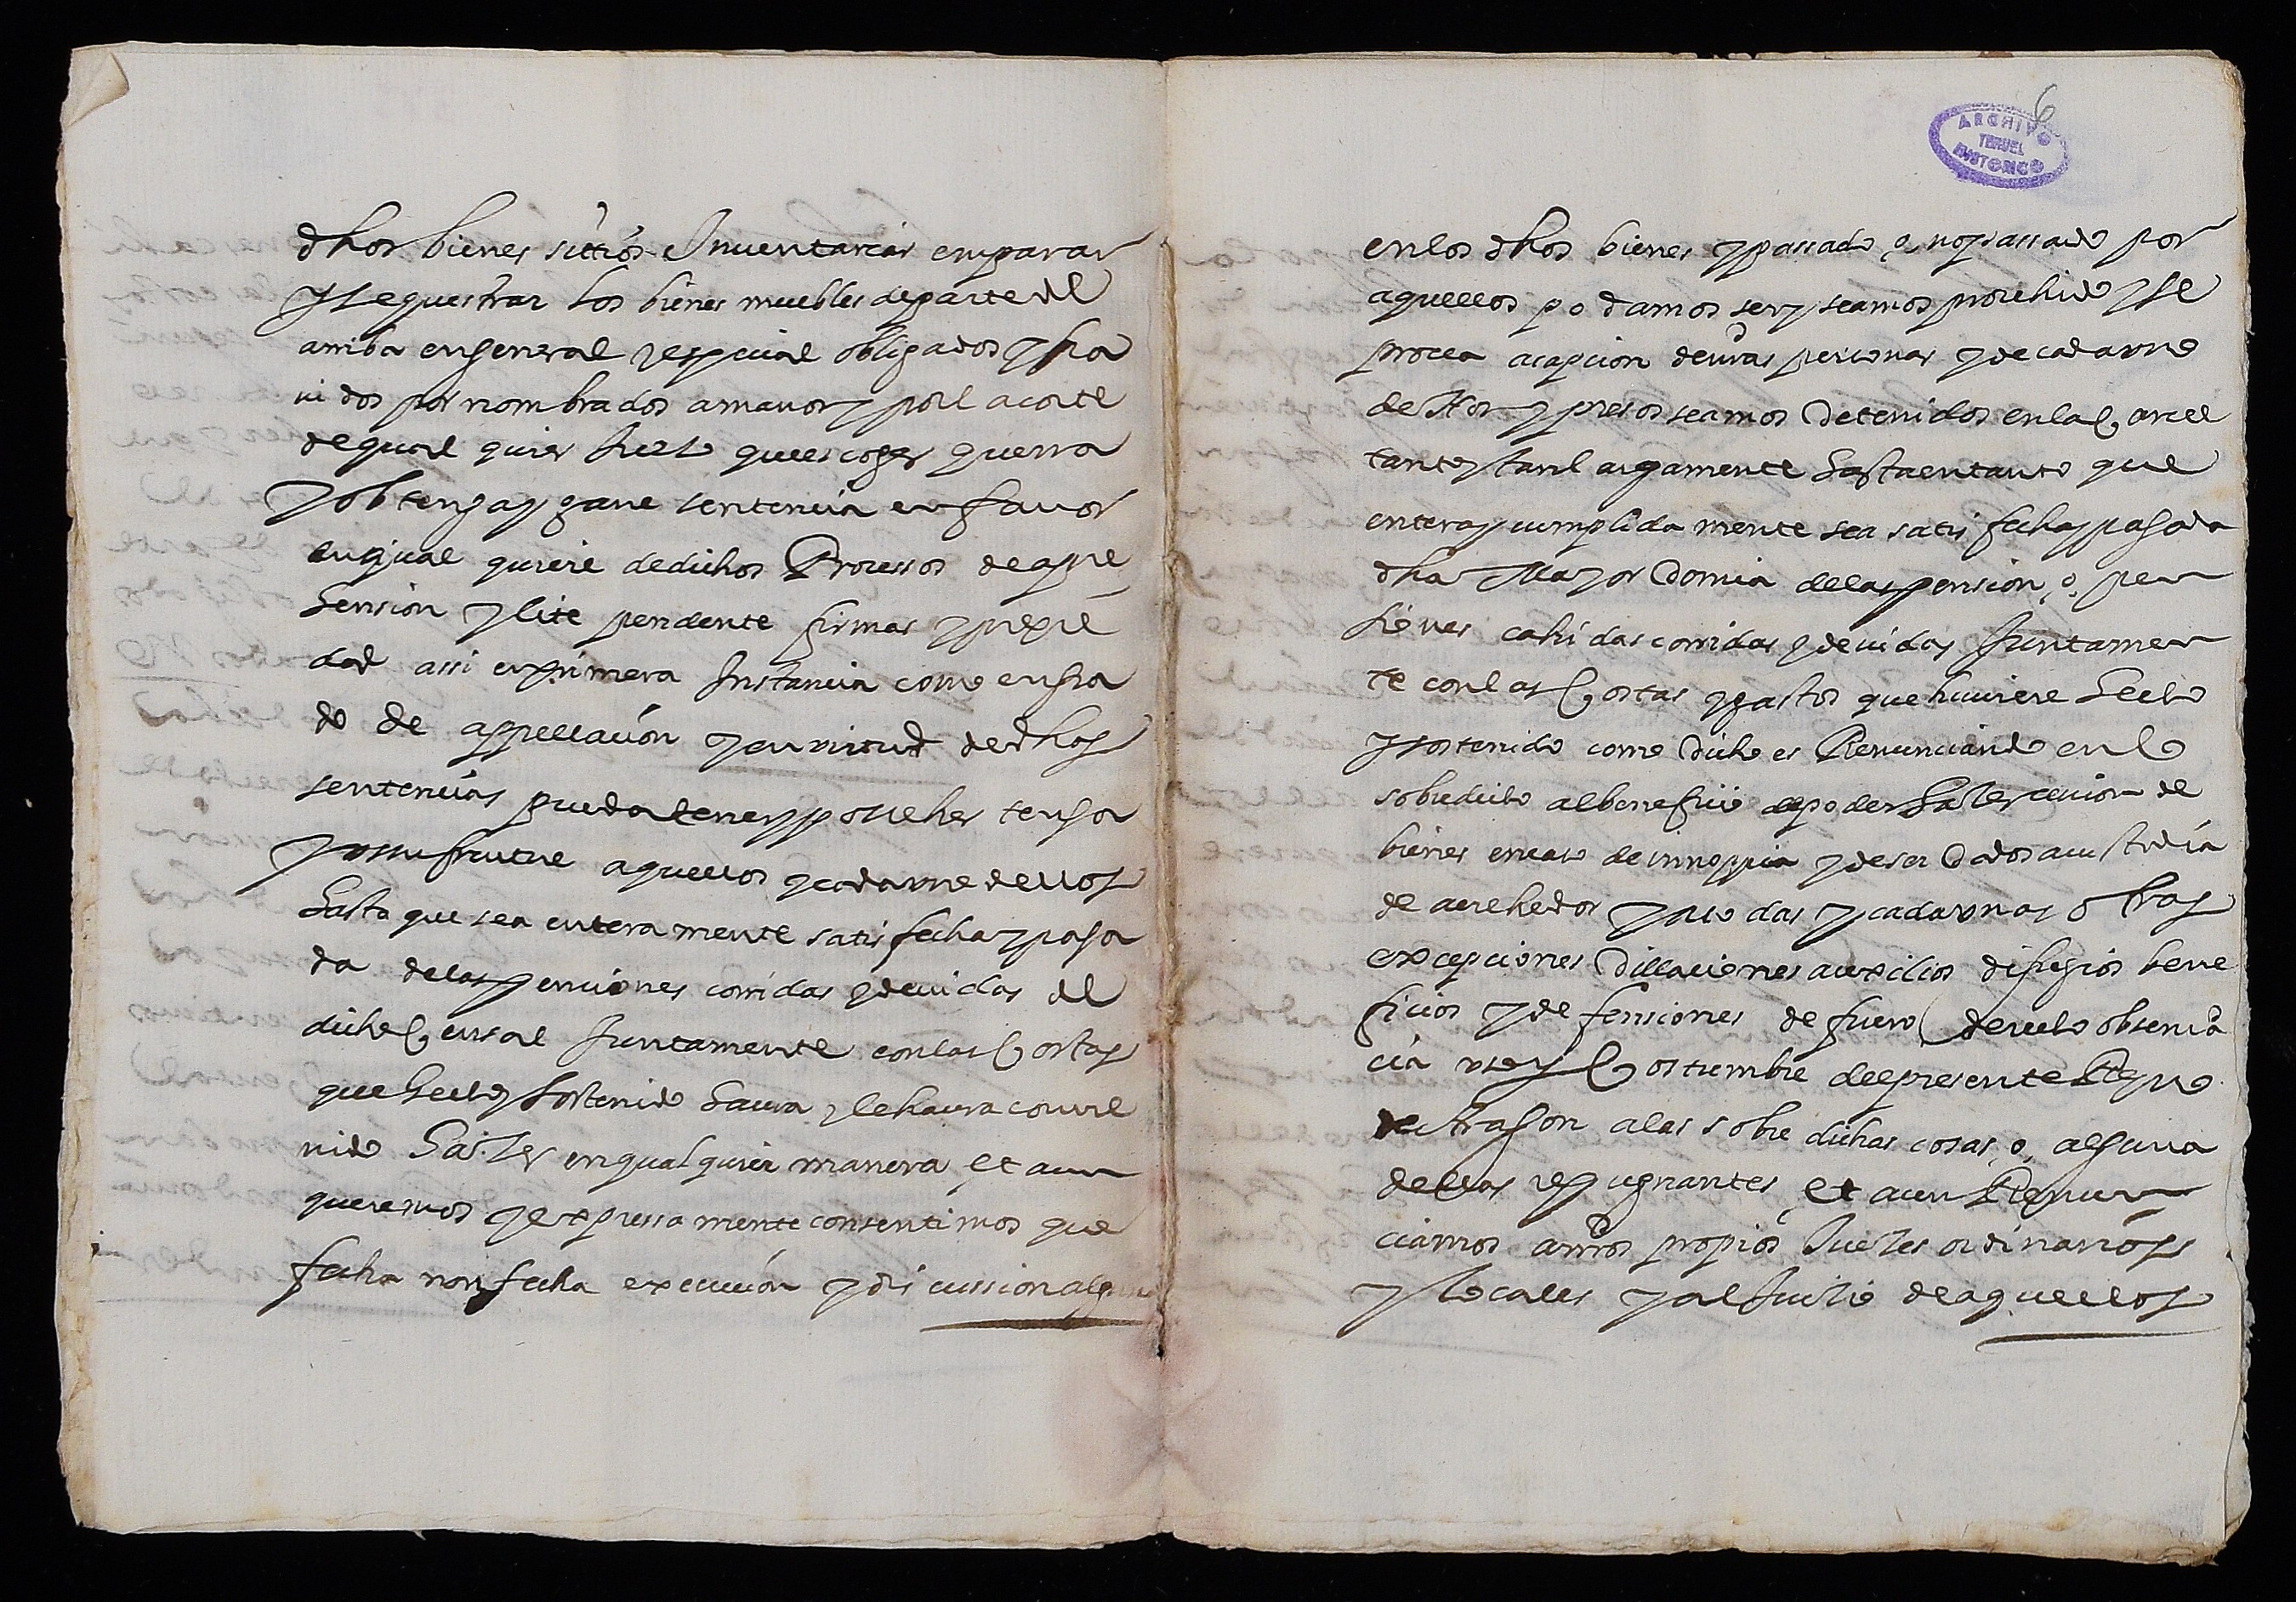 dhos bienes sittios Inuentariar emparar
y sequestrar los bienes muebles de parte del
arriba en general y especial obligados y ha
uidos por nombrados a manos y por la corte
de qual quier Juez que escoger querra
y obtenga y gane sentencia en fauor
en qual quiere de dichos Processos de apre
hension y lite pendente firmas y propie
dad assi en primera Instancia como en gra
do de appellacion y en virtud de dhas
sentencias pueda tener y posseher tenga
y vssufrutue aquellos y cada vno dellos
hasta que sea entera mente satisfecha y paga
da de las penciones corridas y deuidas del
dicho Censal Juntamente con las Costas
que hecho y sostenido haura y le haura conue
nido hazer en qual quier manera Et aun
queremos y expressa mente consentimos que
fecha non fecha execucion y discussion alguna
6
ARCHIVO
TERUEL
HISTORICO
en los dhos bienes y passado o, no passado por
aquellos podamos ser y seamos prouehido y se
procea a capcion de nras personas y de cada vno
de Nos y presos seamos detenidos en la Carcel
tanto y tan largamente hasta en tanto que
entera y cumplida mente sea satisfecha y pagada
dha Mayordomia de las pension, o, pen
siones cahidas corridas y deuidas Juntamen
te con las Costas y gastos que huuiere hecho
y sostenido como dicho es Renunciando en lo
sobredicho al beneficio de poder hazer cesion de
bienes en caso de innoppia y de ser dados a custodia
de acrehedor y a todas y cada vnas otras
excepciones dillaciones auxilios difugios bene
ficios y defensiones de fuero derecho obserua
cia vso y Costumbre del presente Reyno
de Aragon a las sobre dichas cosas, o, alguna
dellas repugnantes, Et aun Renun
ciamos a nros propios Juezes ordinarios
y locales y al Juizio de aquellos